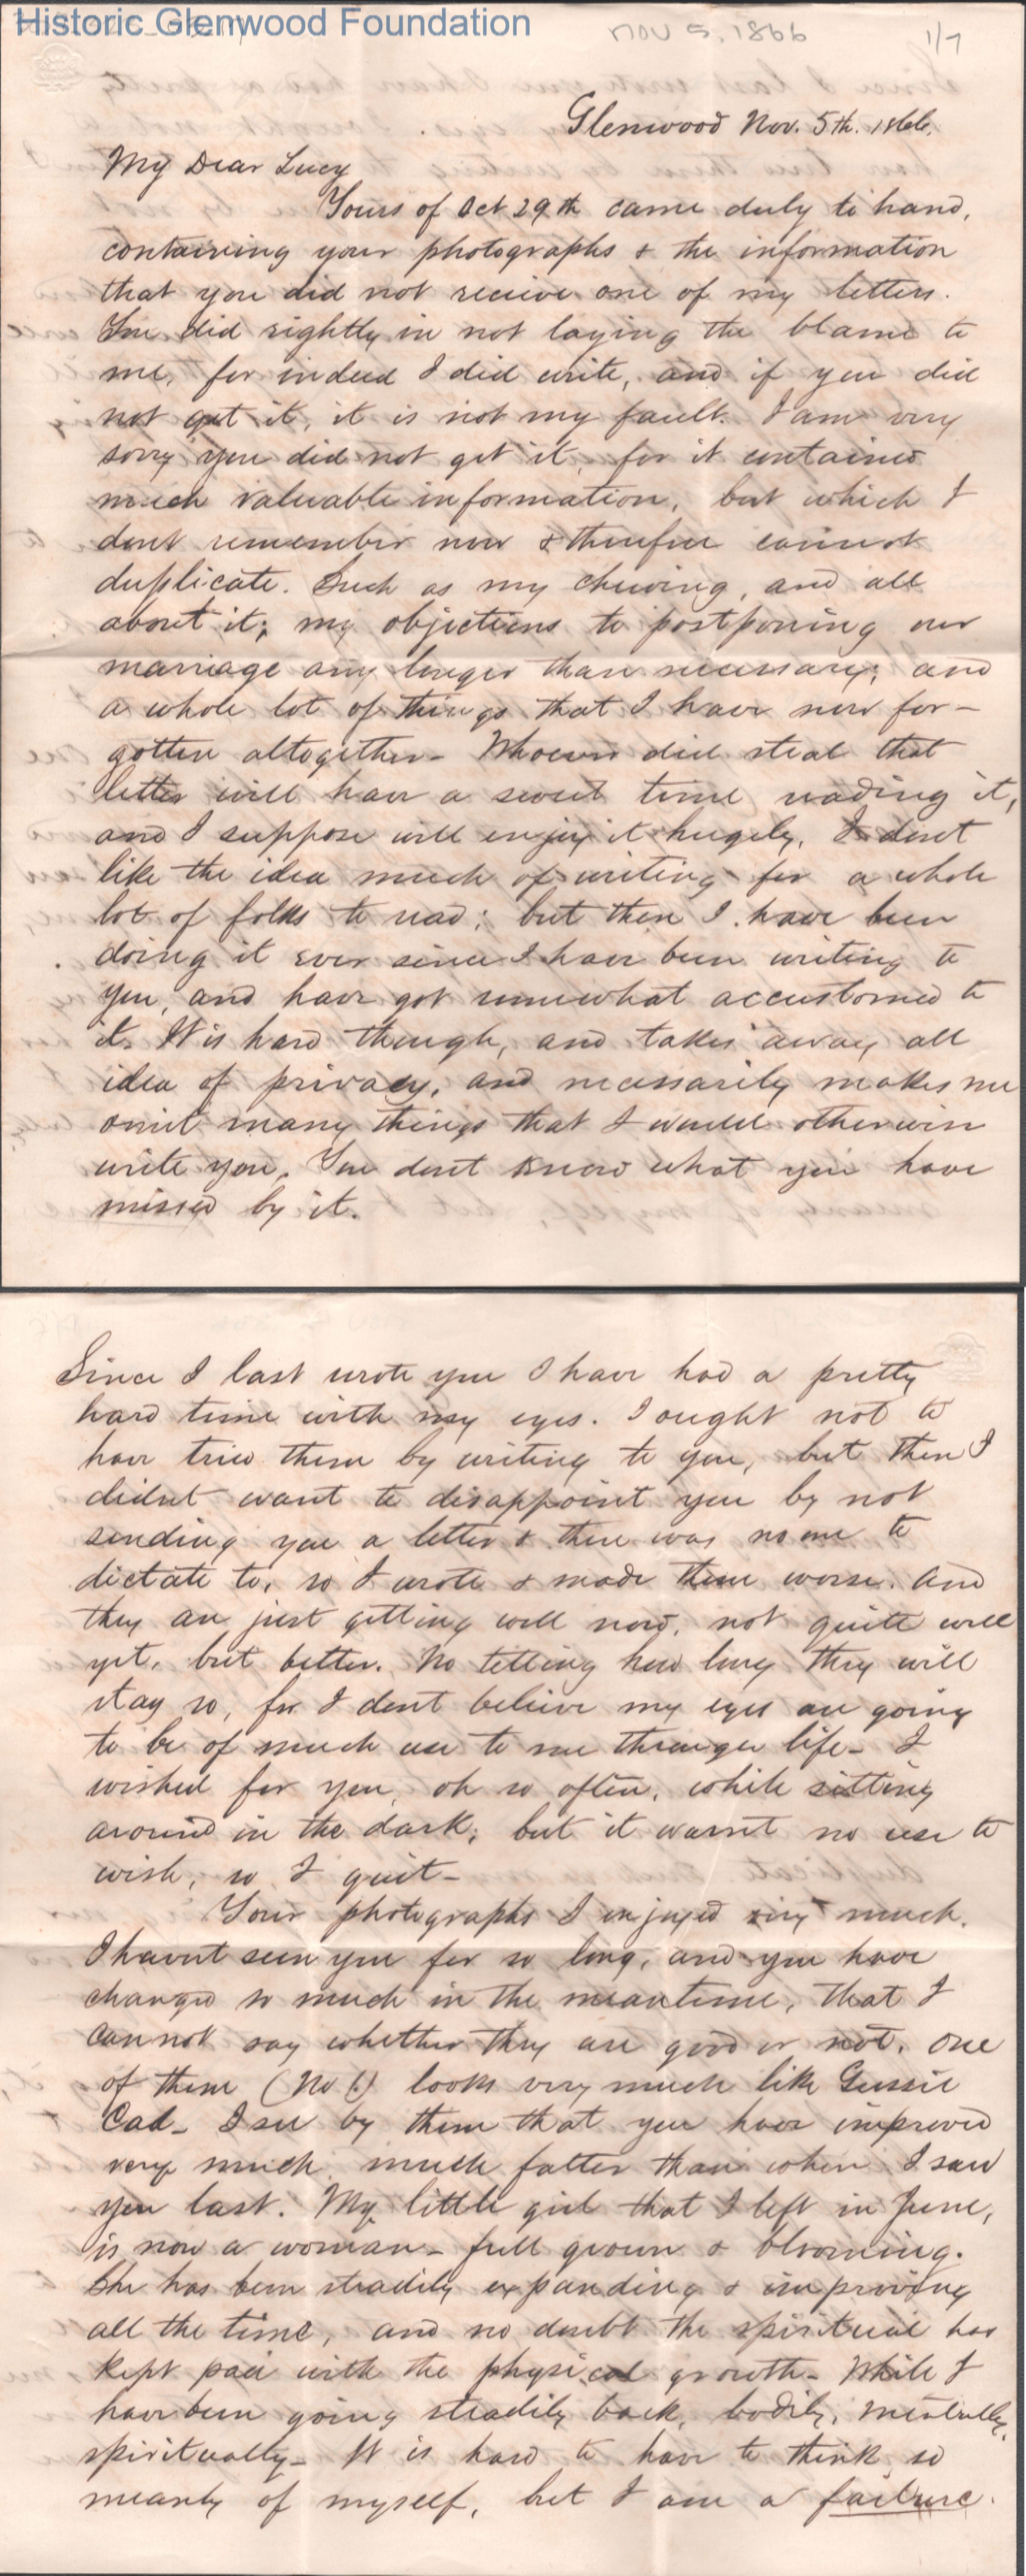 Historic Glenwood Foundation
Nov 5, 1866
1/7
Glenwood Nov. 5th. 1866.
My Dear Lucy
Yours of Oct 29th came duly to hand,
containing your photographs & the information
that you did not recieve one of my letters.
You did rightly in not laying the blame to
me, for indeed I did write, and if you did
not get it, it is not my fault. I am very
sorry you did not get it, for it contained
much valuable information, but which I
dont remember now & therefore cannot
duplicate. Such as my chewing, and all
about it; my objections to postponing our
marriage any longer than necessary; and
a whole lot of things that I have now for-
gotten altogether- Whoever did steal that
letter will have a sweet time reading it,
and I suppose will enjoy it hugely. I dont
like the idea much of writing for a whole
lot of folks to read; but then I have been
doing it ever since I have been writing to
you, and have got somewhat accustomed to
it. It is hard though, and takes away all
idea of privacy, and necessarily makes me
omit many things that I would otherwise
write you. You dont know what you have
missed by it.
Since I last wrote you I have had a pretty
hard time with my eyes. I ought not to
have tried them by writing to you, but then I
didnt want to disappoint you by not
sending you a letter & there was no one to
dictate to, so I wrote & made them worse. And
they are just getting well now, not quite well
yet, but better. No telling how long they will
stay so, for I dont believe my eyes are going
to be of much use to me through life- I
wished for you, oh so often, while sitting
around in the dark; but it warnt no use to
wish, so I quit-
Your photographs I enjoyed very much.
I havnt seen you for so long, and you have
changed so much in the meantime, that I
cannot say whether they are good or not. One
of them (No 1.) looks very much like Gussie
Cad- I see by them that you have improved
very much, much fatter than when I saw
you last. My little girl that I left in June,
is now a woman- full grown & blooming.
She has been steadily expanding & improving
all the time, and no doubt the spiritual has
kept pace with the physical growth- While I
have been going steadily back, bodily, mentally,
spiritually- It is hard to have to think so
meanly of myself, but I am a failure.